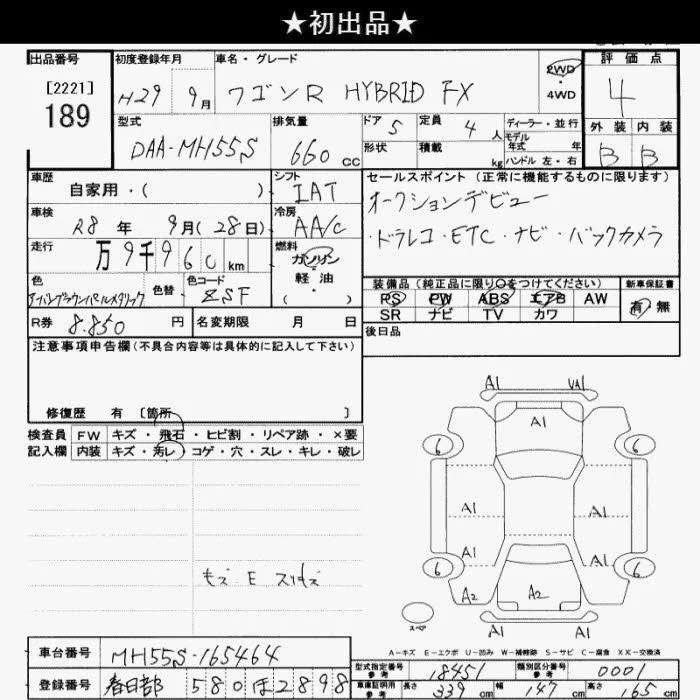 ★初出品★
出品番号
[2221]
189
初度登録年月
H29 9月
車名・グレード
ワゴンR HYBRID FX
2WD
・
4WD
評価点
4
外装 内装
B B
型式
DAA-MH55S
排気量
660 cc
ドア 5
形状
定員 4 人
積載 kg
ディーラー・並行
モデル
年式 年
ハンドル 左・右
車歴
自家用・( )
シフト
IAT
セールスポイント(正常に機能するものに限ります)
オークションデビュー
・ドラレコ・ETC・ナビ・バックカメラ
車検
R8 年 9月(28日)
冷房
AA/C
走行
万9千960km
燃料
ガソリン
軽油
( )
色
色替
色コード
ZSF
装備品(純正品に限り○をつけてください)
PS PW ABS エアB AW
SR ナビ TV カワ
新車保証書
有 無
R券 8.850 円
名変期限 月 日
後日品
注意事項申告欄(不具合内容等は具体的に記入して下さい)
修復歴 有 [箇所 ]
検査員 FW キズ・飛石・ヒビ割・リペア跡・×要
記入欄 内装 キズ・汚レ・コゲ・穴・スレ・キレ・破レ
A1
A1
6 6
A1 A1
A1 A1
6 6
A2 A2 A1
A1 A1
スペア
A-キズ E-エクボ U-凹み W-補修跡 S-サビ C-腐食 XX-交換済
車台番号 MH55S-165464
登録番号 春日部 580ほ2898
型式指定番号
参考
18451
類別区分番号
参考
0001
車庫証明用
参考
長さ 339 cm 幅 147 cm 高さ 165 cm